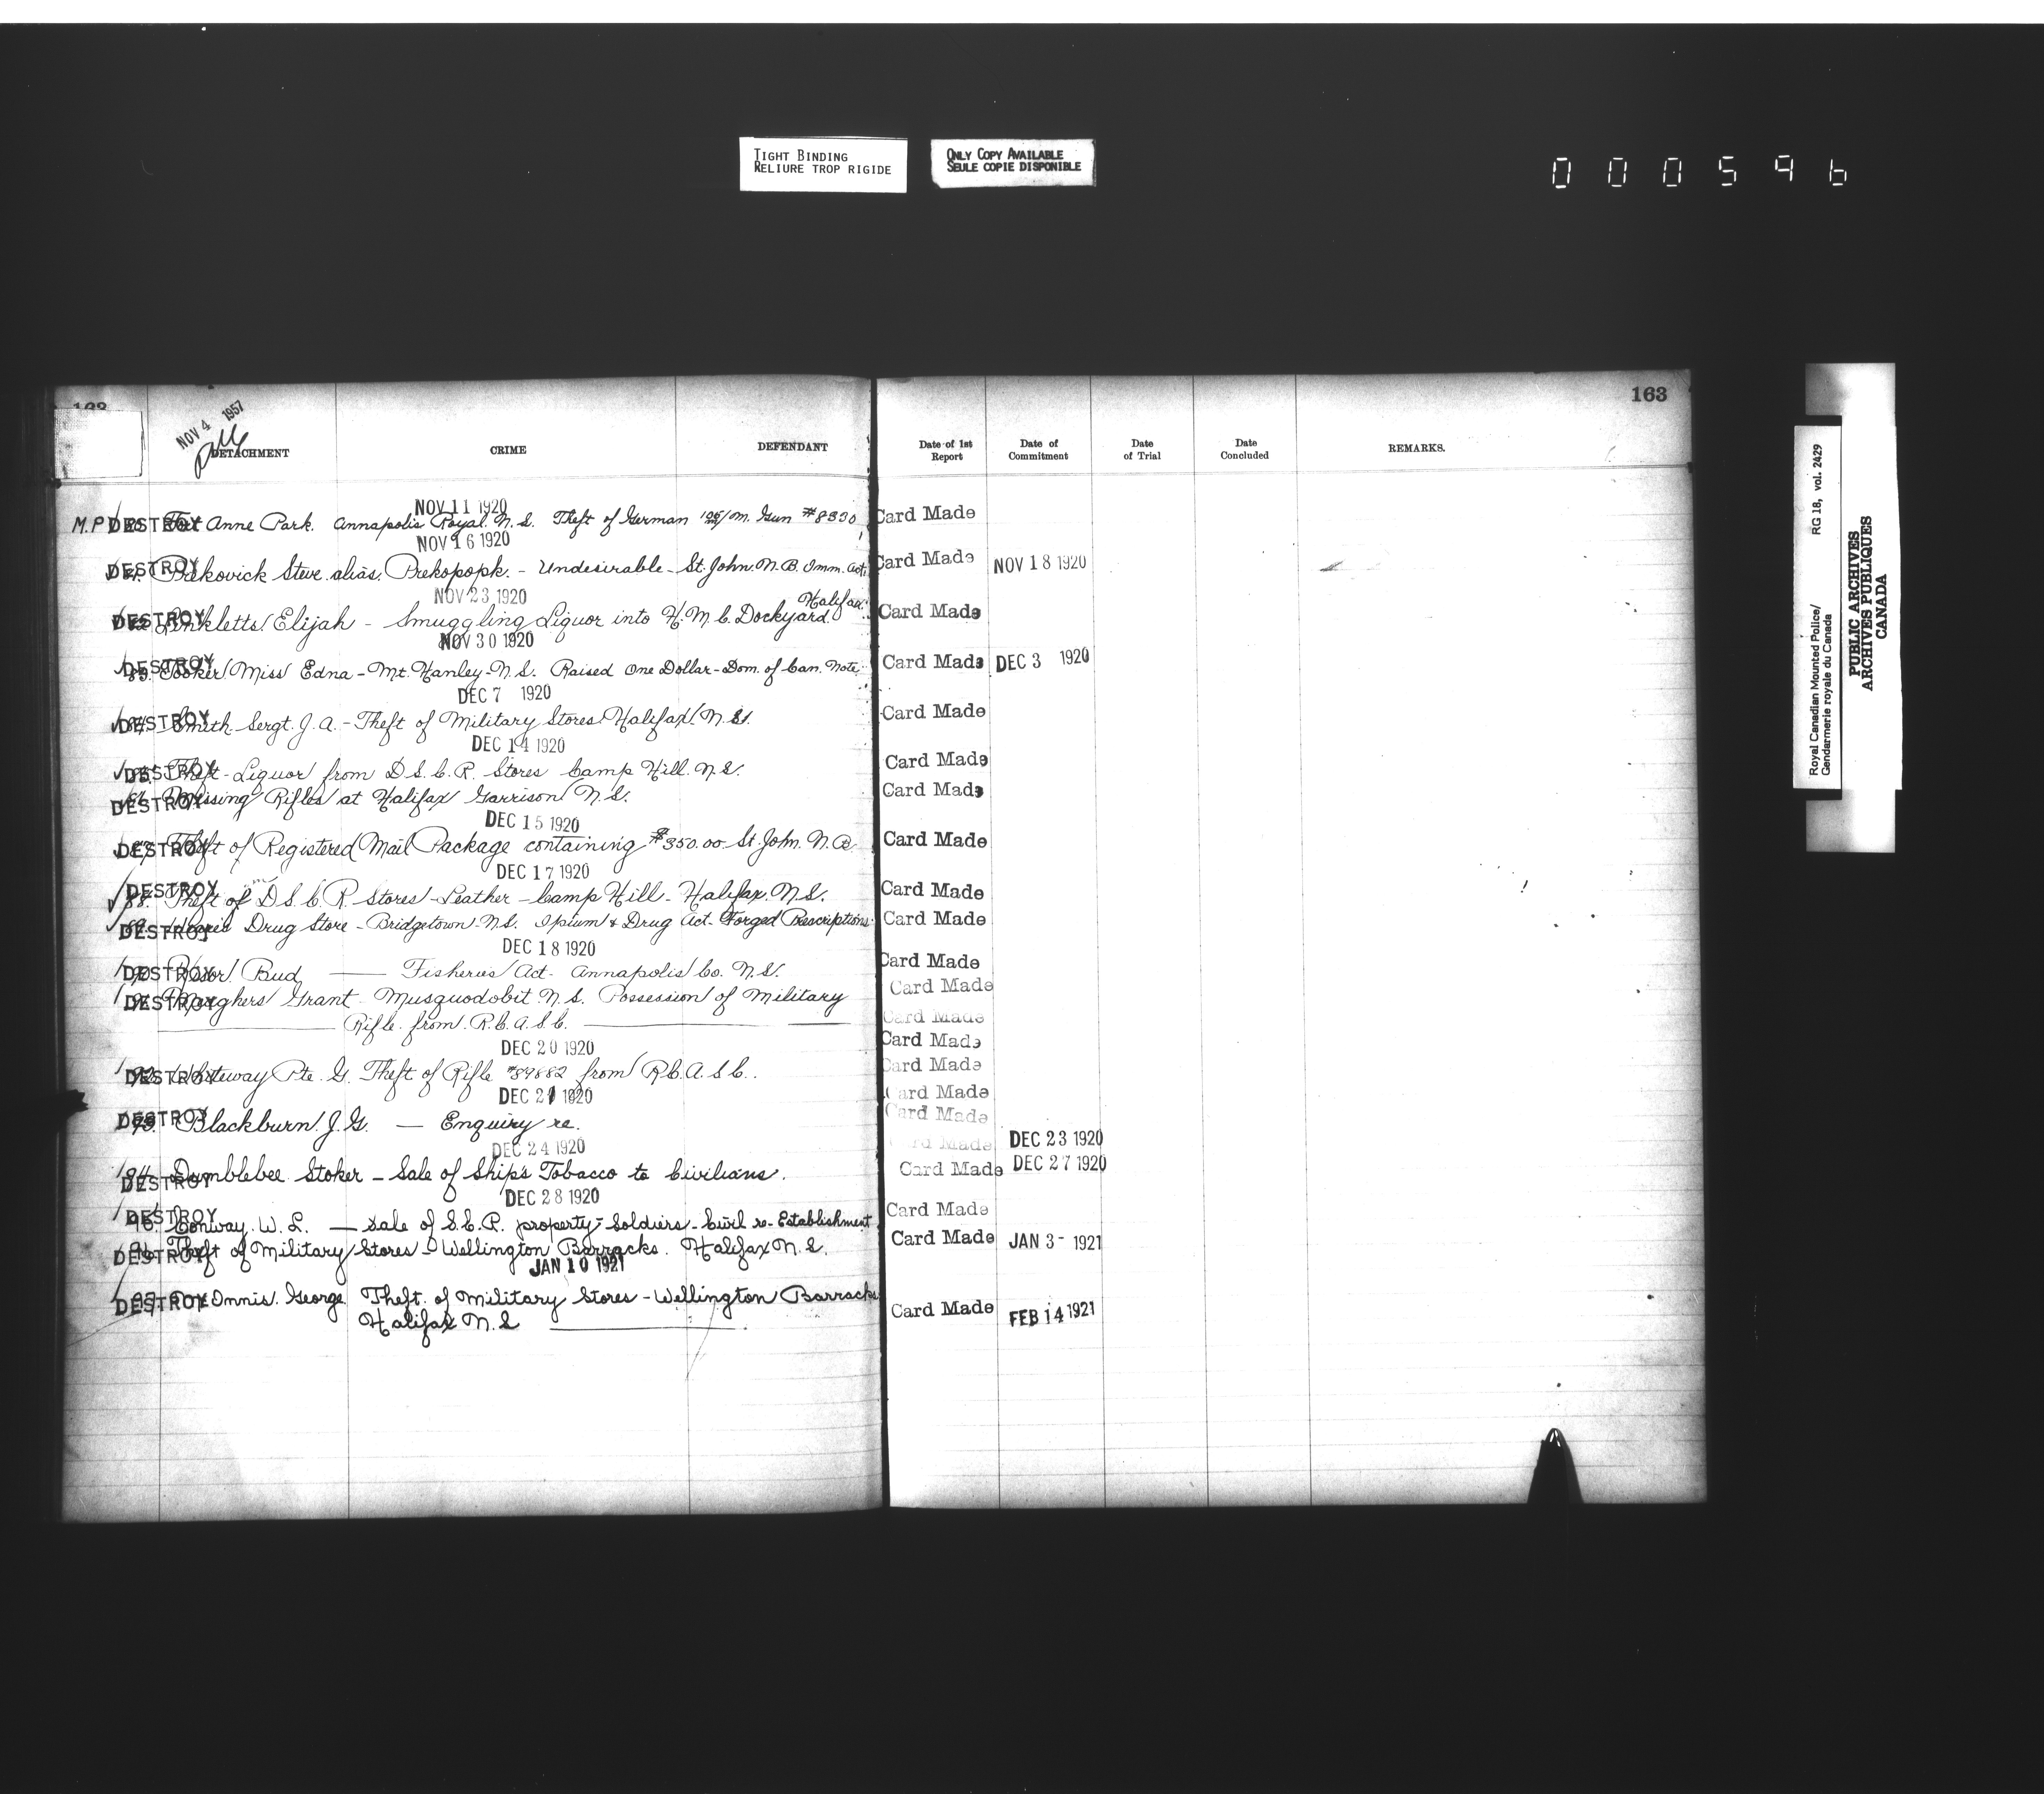 TIGHT BINDING
RELIURE TROP RIGIDE
ONLY COPY AVAILABLE
SEULE COPIE DISPONIBLE
000596
163
163
NOV 4 1957
DETACHMENT CRIME DEFENDANT Date of 1st Report Date of Commitment Date of Trial Date Concluded REMARKS.
NOV 11 1920
M.P. DESTROY Fort Anne Park. Annapolis Royal. N.S. Theft of German 105/m. Gun #8320 Card Made
NOV 16 1920
DESTROY Steve alias. Prekopopk. - Undesirable - St. John. N.B. Imm. Act. Card Made NOV 18 1920
NOV 23 1920
Halifax.
DESTROY Linkletts Elijah - Smuggling Liquor into H.M.C. Dockyard. Card Made
NOV 30 1920
DESTROY 83. Tooker Miss Edna - Mt. Hanley - N.S. Raised One Dollar - Dom. of Can. Note. Card Made DEC 3 1920
DEC 7 1920
DESTROY 84. Smith Sergt. J.A. - Theft of Military Stores Halifax N.S. Card Made
DEC 14 1920
DESTROY 85. Theft - Liquor from D.S.C.R. Stores Camp Hill. N.S. Card Made
DESTROY Missing Rifles at Halifax Garrison N.S. Card Made
DEC 15 1920
DESTROY 87. Theft of Registered Mail Package containing $350.00 St. John. N.B. Card Made
DEC 17 1920
DESTROY 88. Theft of D.S.C.R. Stores - Leather - Camp Hill - Halifax. N.S. Card Made
DESTROY 89. Drug Store - Bridgetown - N.S. Opium & Drug Act - Forged Prescriptions. Card Made
DEC 18 1920
DESTROY 90. Bud — Fisheries Act - Annapolis Co. N.S. Card Made
DESTROY Grant Musquodobit N.S. Possession of Military Card Made
Rifle from R.C.A.S.C. Card Made
Card Made
DEC 20 1920
DESTROY 92. Pte. G. Theft of Rifle #89882 from R.C.A.S.C. Card Made
DEC 21 1920 Card Made
DESTROY 93. Blackburn. J.G. — Enquiry re. Card Made
DEC 24 1920 Card Made DEC 23 1920
DESTROY 94. Dumblebee Stoker - Sale of Ships Tobacco to Civilians. Card Made DEC 27 1920
DEC 28 1920
DESTROY 95. Conway. W.L. — Sale of S.C.R. property - Soldiers - Civil re-Establishment Card Made
DESTROY 96. Theft of Military Stores - Wellington Barracks. Halifax N.S. Card Made JAN 3 - 1921
JAN 10 1921
DESTROY 97. George Theft of Military Stores - Wellington Barracks Card Made FEB 14 1921
Halifax N.S
Royal Canadian Mounted Police/ RG 18, vol. 2429
Gendarmerie royale du Canada
PUBLIC ARCHIVES
ARCHIVES PUBLIQUES
CANADA